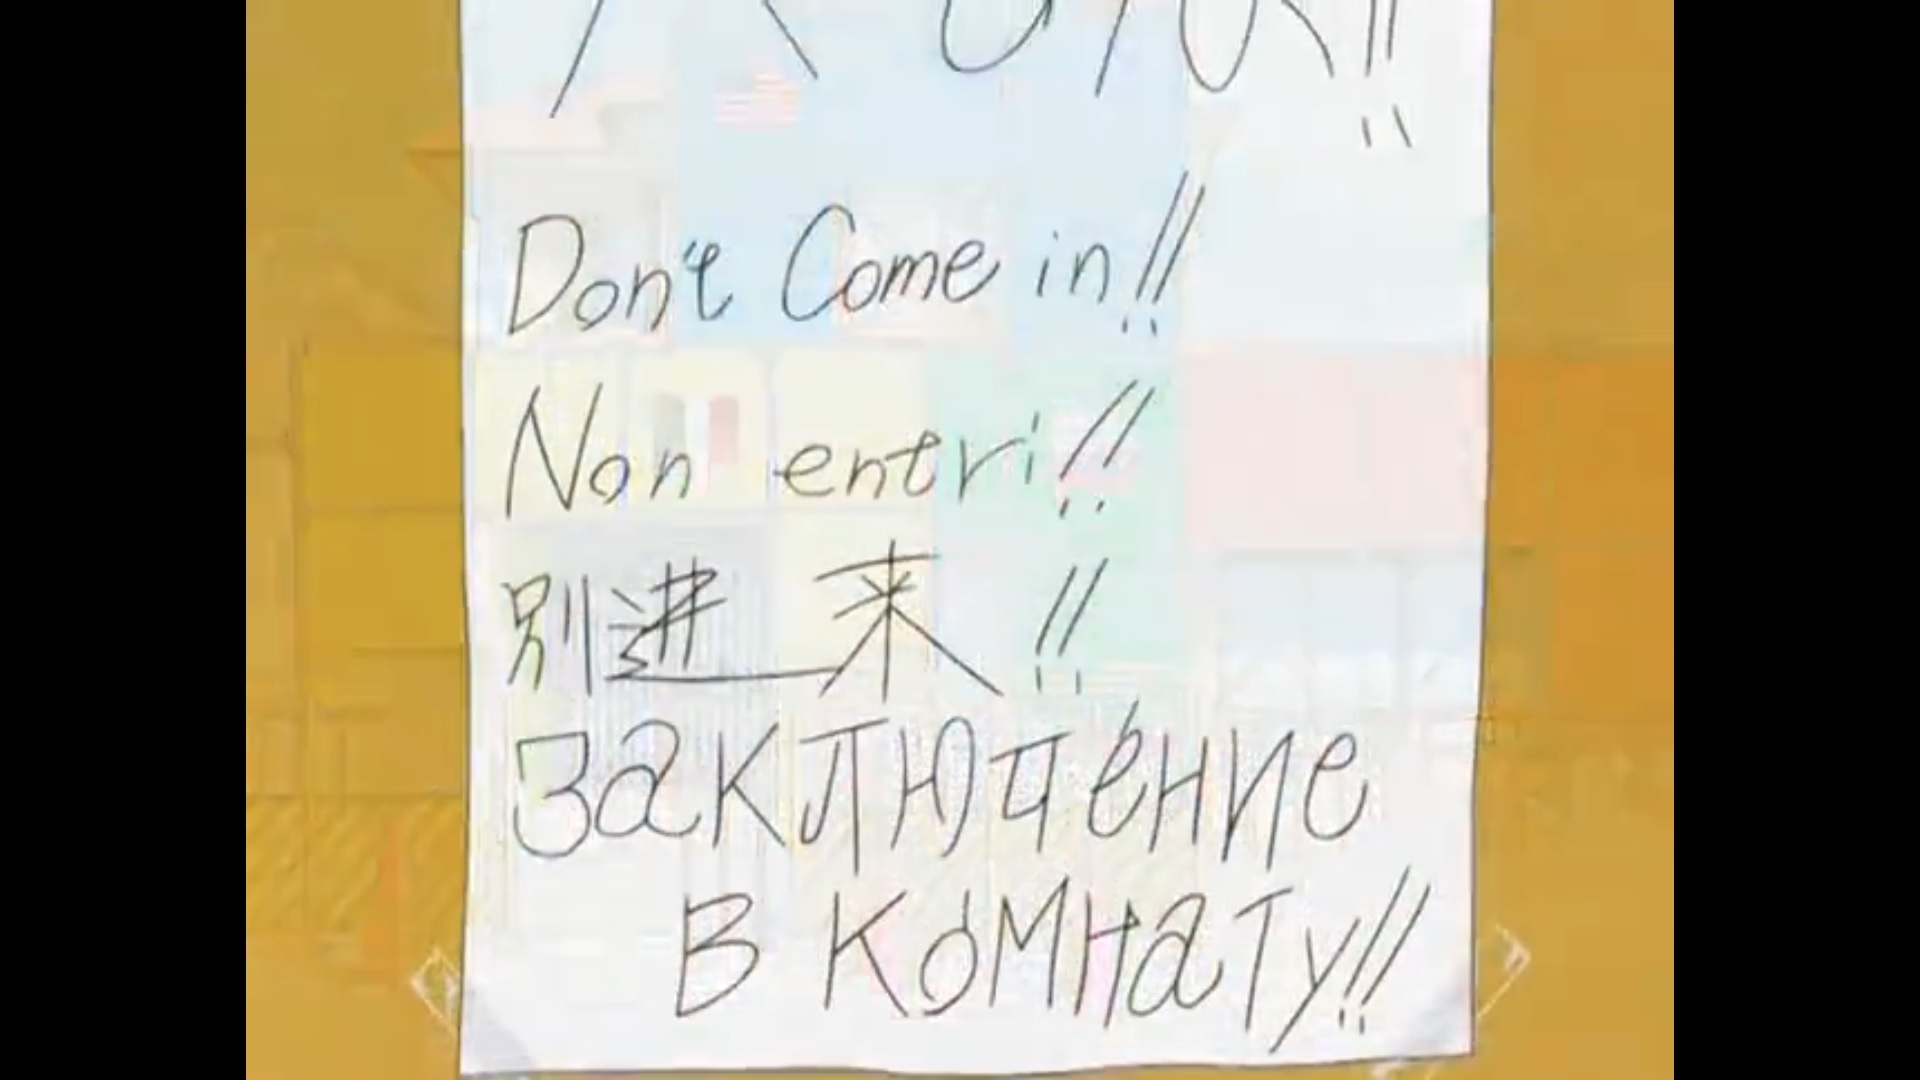 Don't Come in!!
Non entri!!
别进来!!
заключение
в комнату!!